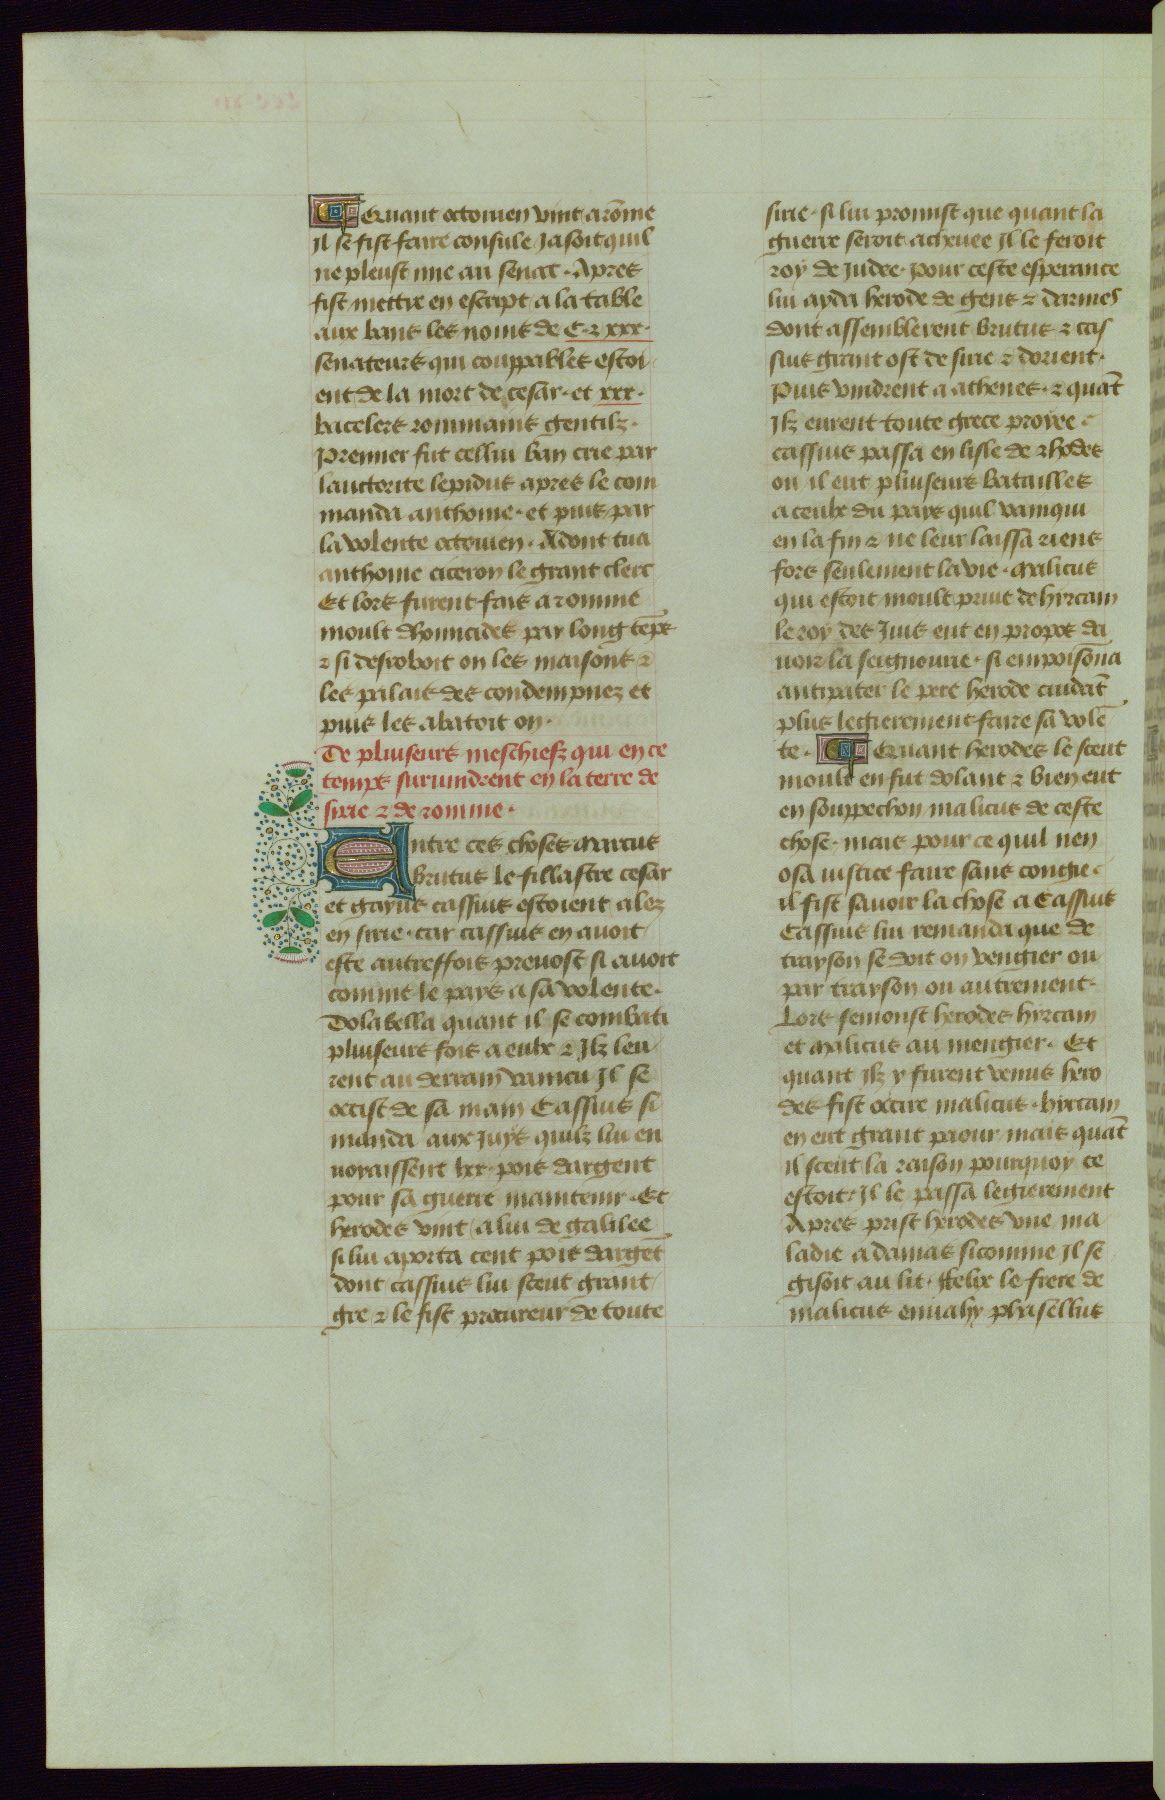 Quant octouien vint a rõme
il se fist faire consule Ja soit quil
ne pleust mie au senat. Apres
fist mettre en escript a la table
aux bans les noms de C. ⁊ xxx.
senateurs qui couppables estoi
ent de la mort de cesar. et xxx.
bacelers rommains gentilz.
Premier fut cellui ban crie par
lauctorite lepidus apres le com
manda anthoine. et puis par
la volente octouien. Adont tua
anthoine ciceron le grant clerc
Et lors furent fais a romme
moult dhomicides par long tẽps
⁊ si desroboit on les maisons ⁊
les palais des condempnez et
puis les abatoit on.
De pluiseurs meschiefz qui en ce
temps suruindrent en la terre de
sirie ⁊ de romme.
Entre ces choses marcus
brutus le fillastre cesar
et gayus cassius estoient alez
en sirie. car cassius en auoit
este autreffois preuost si auoit
comme le pays a sa volente.
Dolabella quant il se combati
pluiseurs fois a eulx ⁊ Ilz leu
rent au derrain vaincu Il se
occist de sa main Cassius si
manda aux Juys quilz lui en
uoiaissent lxx. pois dargent
pour sa guerre maintenir. Et
herodes vint a lui de galilee
si lui aporta cent pois dargẽt
dont cassius lui sceut grant
gre ⁊ le fist procureur de toute
sirie. si lui promist que quant la
guerre seroit acheuee Il le feroit
roy de Judee. pour ceste esperance
lui ayda herode de gens ⁊ darmes
dont assemblerent brutus ⁊ cas
sius grant ost de sirie ⁊ dorient.
Puis vindrent a athenes. ⁊ quãt
Ilz eurent toute grece proyee
cassius passa en lisle de rhodes
ou il eut pluiseurs batailles
a ceulx du pays quil vainqui
en la fin ⁊ ne leur laissa riens
fors seulement la vie. malicus
qui estoit moult priue de hyrcam
le roy des Juis eut en propos da
uoir la seignourie. si empoisõna
antipater le pere herode cuidãt
plus legierement faire sa volẽ
te. Quant herodes le sceut
moult en fut dolant ⁊ bien eut
en souppechon malicus de ceste
chose. mais pour ce quil nen
osa iustice faire sans congie
il fist sauoir la chose a Cassius
Cassius lui remanda que de
trayson se doit on vengier ou
par trayson ou autrement.
Lors semonst herodes hyrcam
et malicus au mengier. Et
quant Ilz y furent venus hero
des fist occire malicus. hyrcam
en eut grant paour mais quãt
il sceut la raison pourquoy ce
estoit. Il le passa legierement
Apres prist herodes vne ma
ladie a damas sicomme Il se
gisoit au lit. Felix le frere de
malicus enuahy phasellus